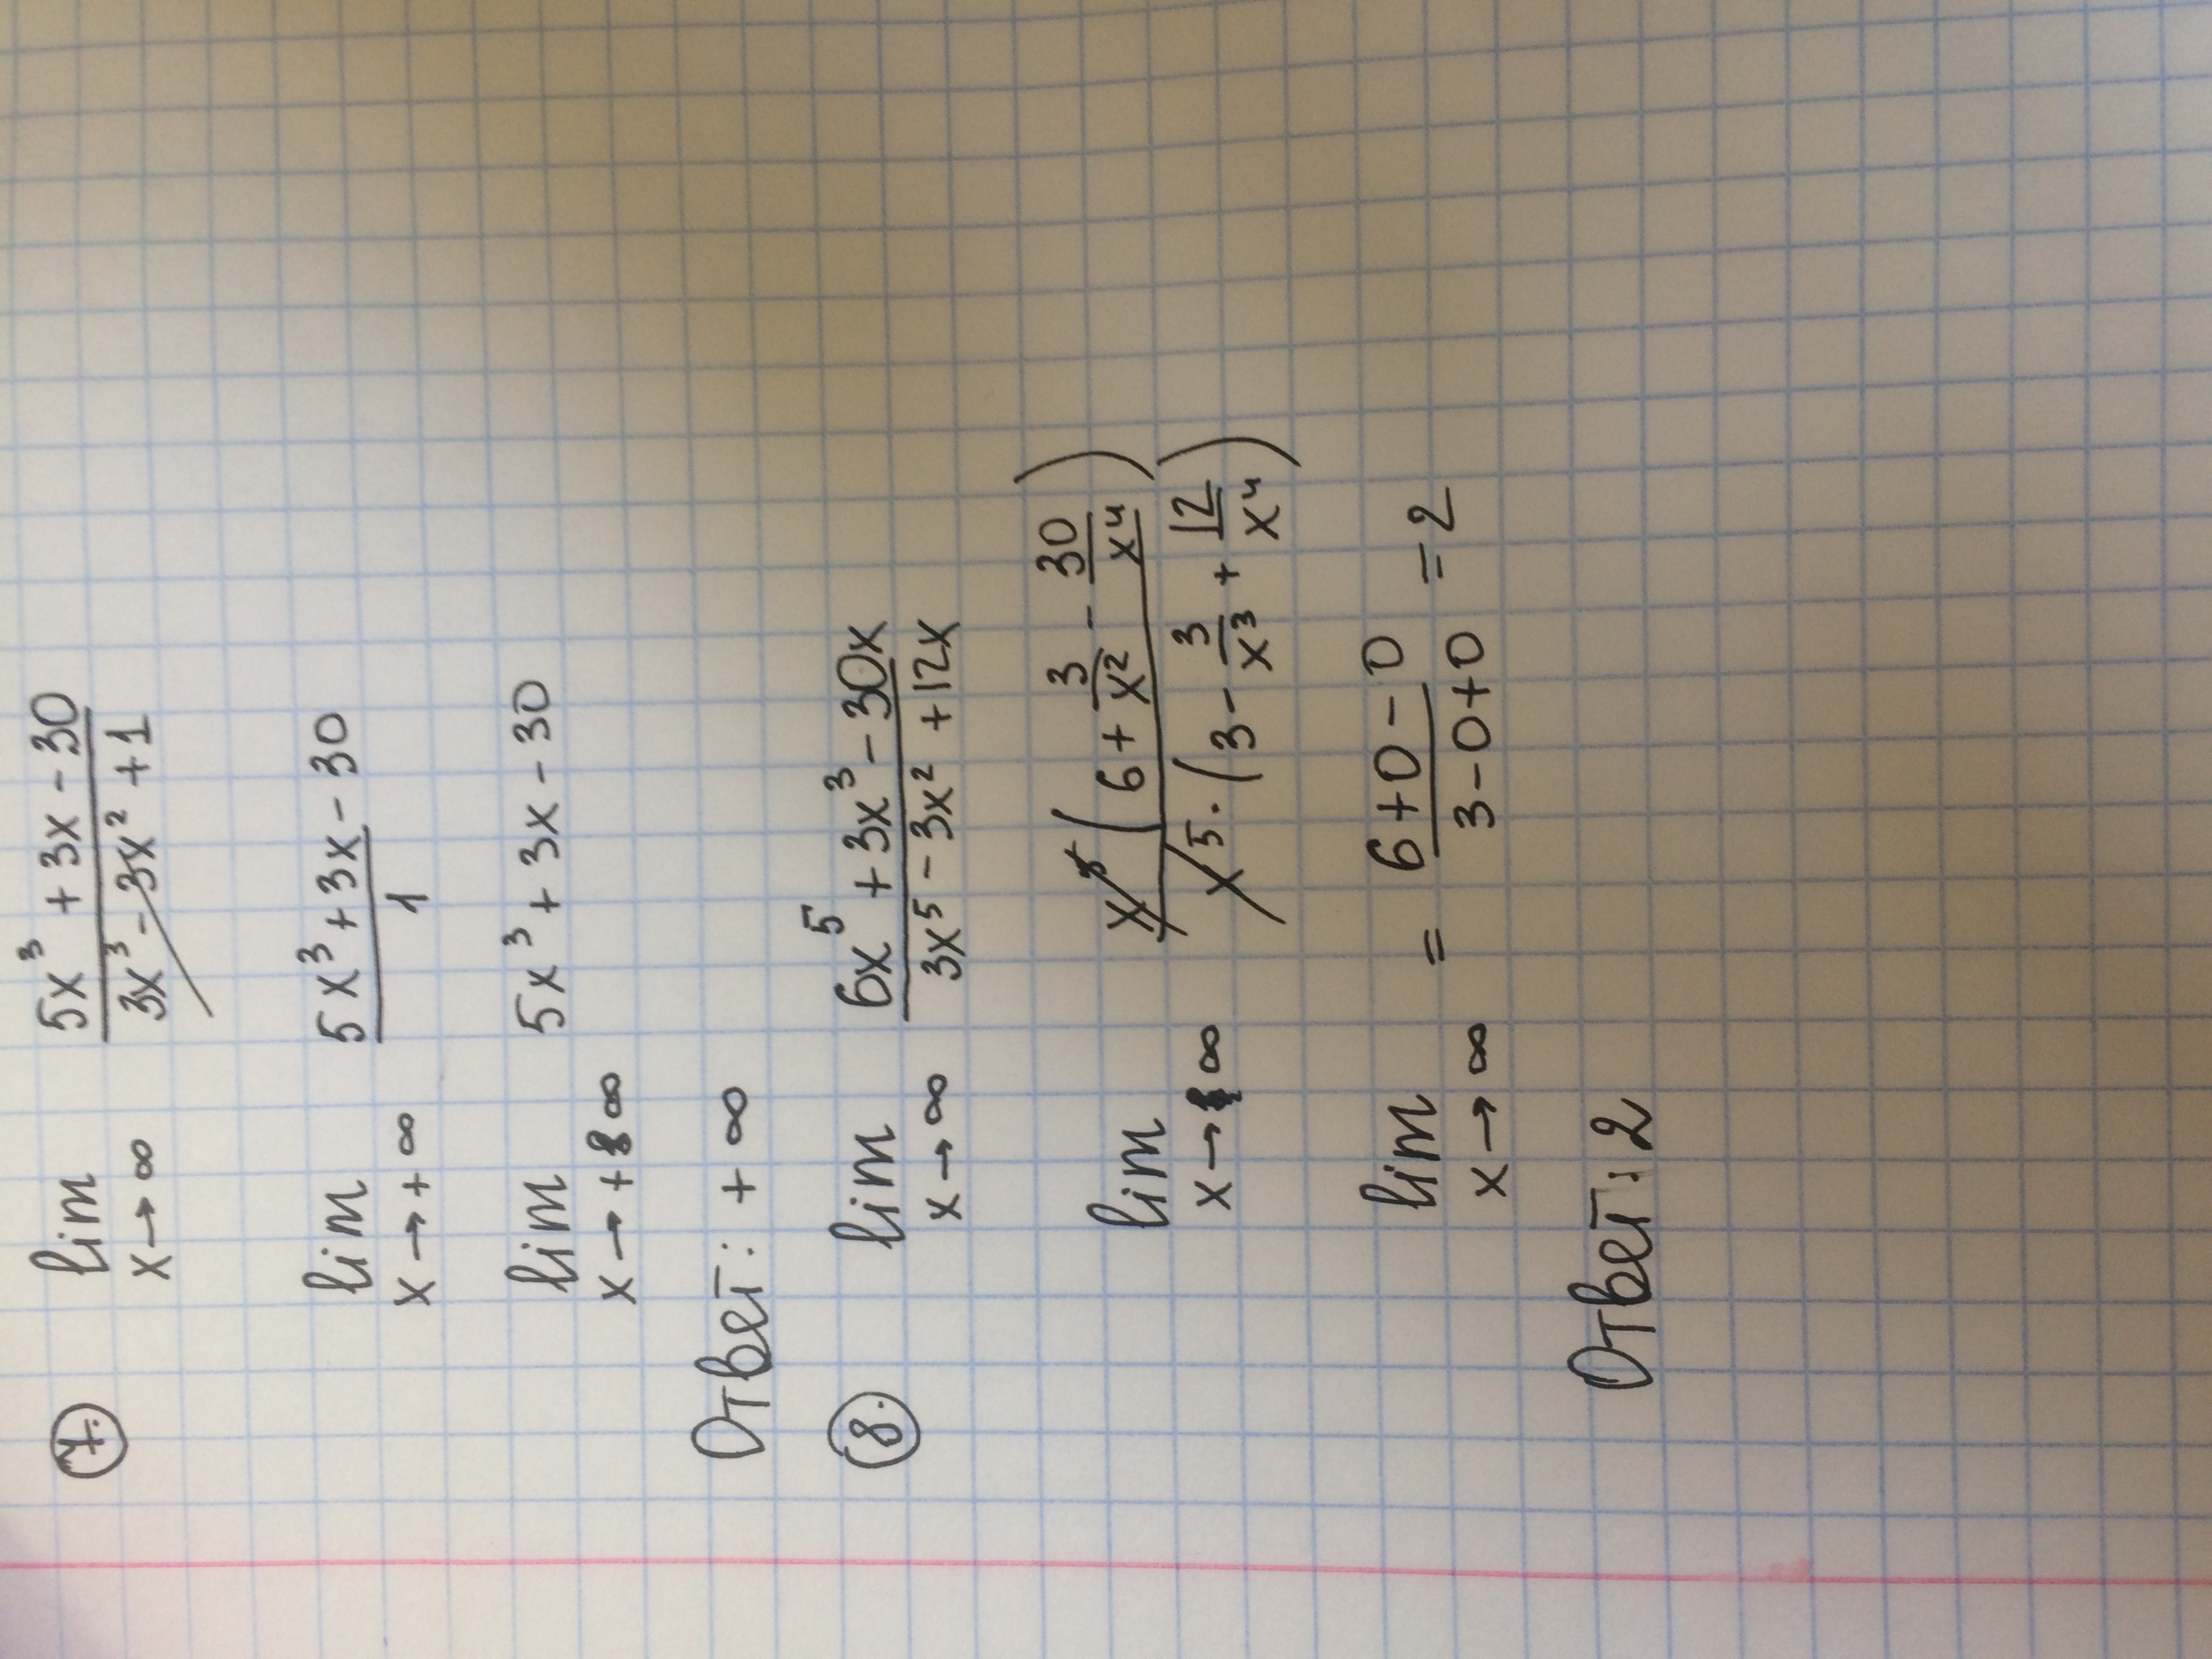 7. lim x→∞ (5x³ + 3x - 30)/(3x³ - 3x² + 1)
lim x→+∞ (5x³ + 3x - 30)/1
lim x→+∞ 5x³ + 3x - 30
Ответ: +∞
8. lim x→∞ (6x⁵ + 3x³ - 30x)/(3x⁵ - 3x² + 12x)
lim x→∞ x⁵(6 + 3/x² - 30/x⁴)/x⁵·(3 - 3/x³ + 12/x⁴)
lim x→∞ = (6+0-0)/(3-0+0) = 2
Ответ: 2